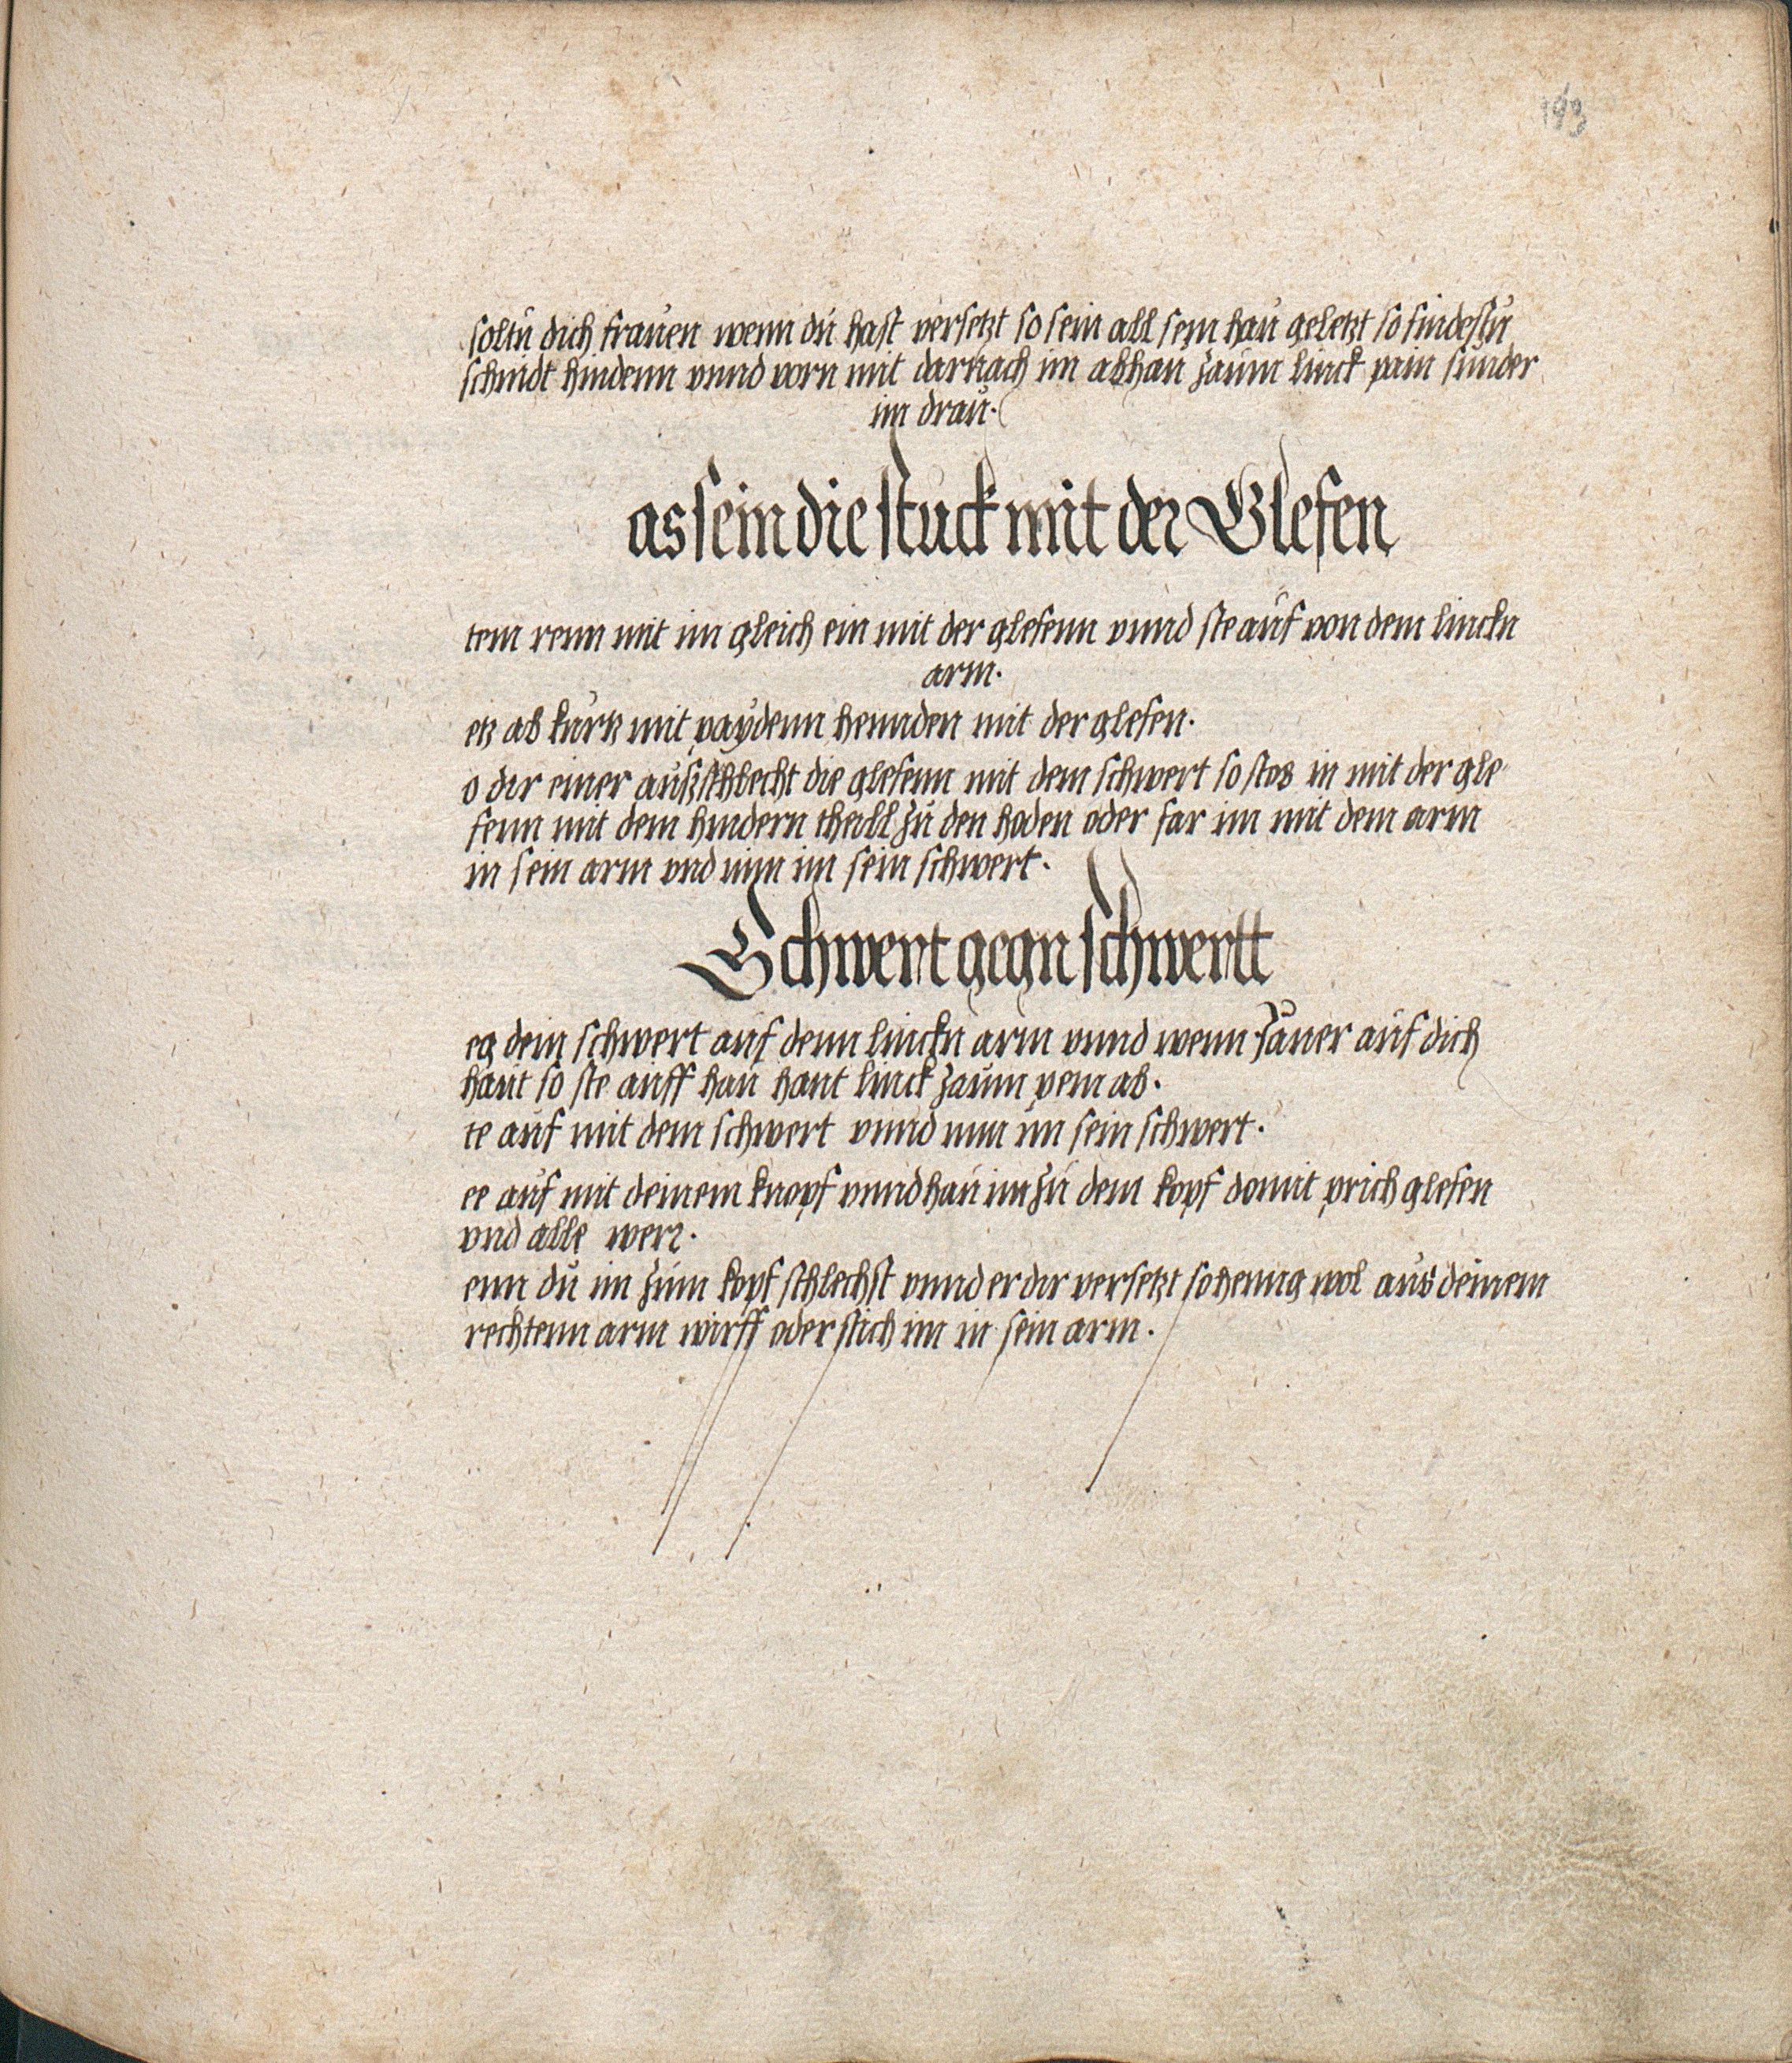 193
soltu dich frauen wenn du hast versetzt so sein all sein hau geletzt so findestu
schnidt hindenn vnnd vorn mit darnach im abhau zaum linck pain sunder
im drau.
as sein die stuck mit der Glefen
tem renn mit im gleich ein mit der glefenn vnnd ste auf von dem linckn
arm.
etz ab kurtz mit paydenn hennden mit der glefen.
o dir einer außschlecht die glefenn mit dem schwert so stos in mit der gle
fenn mit dem hindern theill zu den hoden oder far im mit dem arm
in sein arm vnd nim im sein schwert.
Schwert gegn schwertt
eg dein schwert auf denn linckn arm vnnd wenn zauer auf dich
haut so ste auff hau hant linck zaum pein ab.
te auf mit dem schwert vnnd nim im sein schwert.
ee auf mit deinem knopf vnnd hau im zu dem kopf domit prich glefen
vnd alle wer.
enn du im zum kopf schlechst vnnd er dir versetzt so heng wol aus deinem
rechtenn arm wirff oder stich im in sein arm.